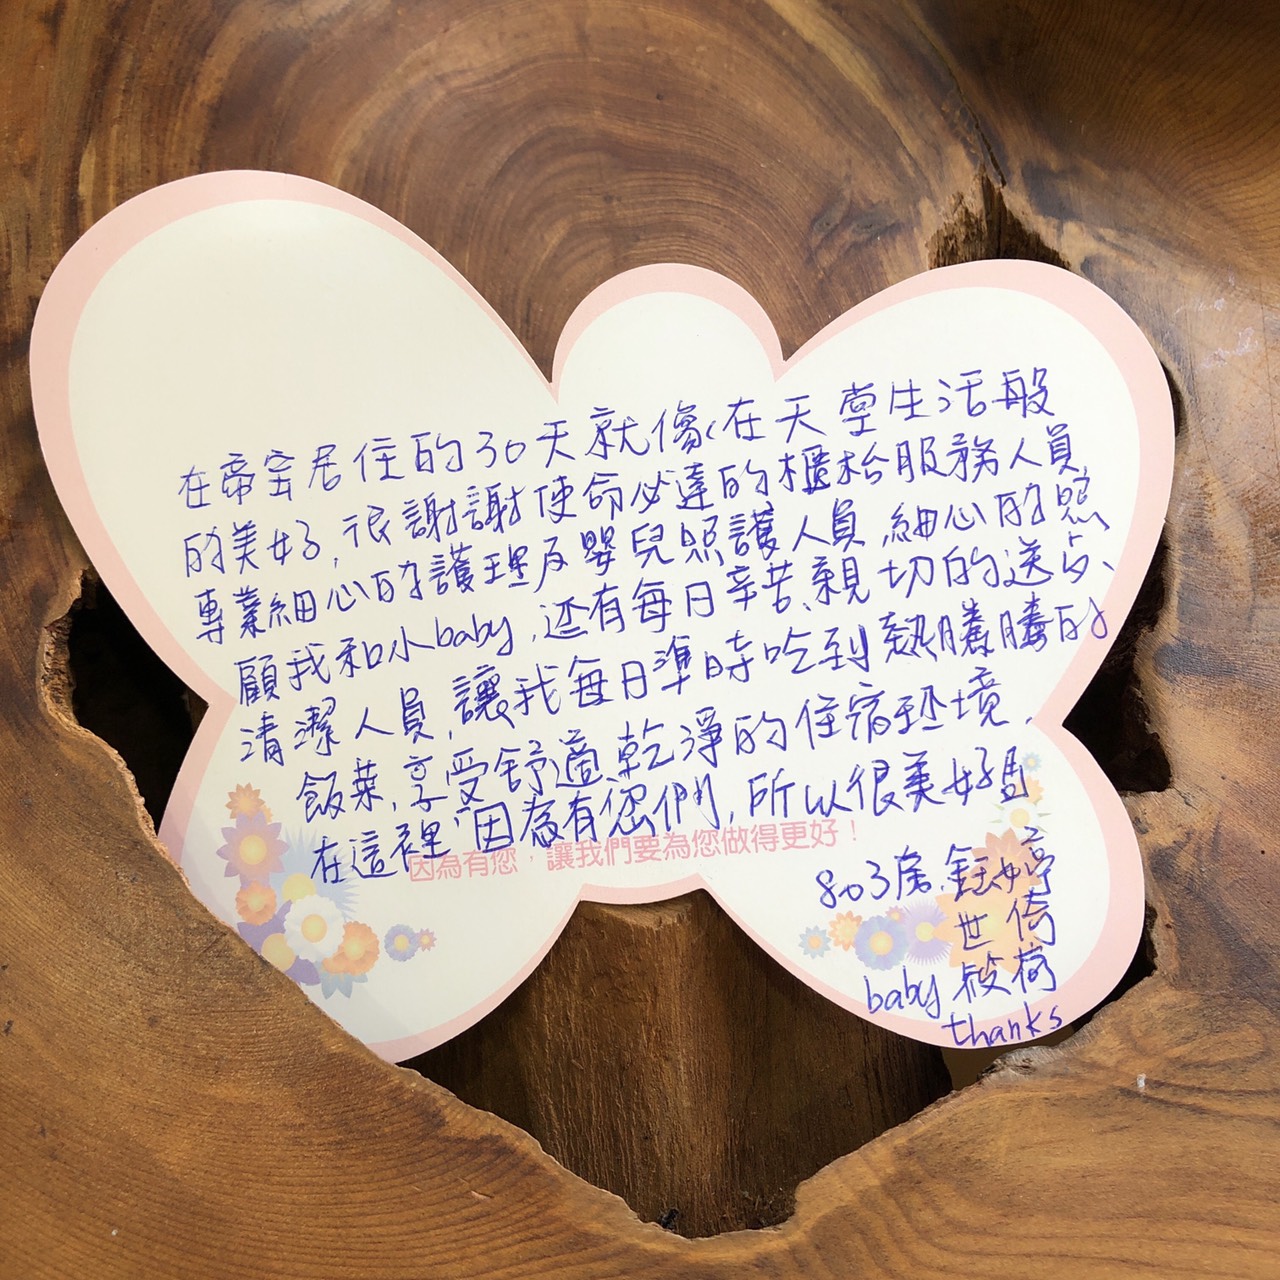 在帝宝居住的30天就像在天堂生活般
的美好,很謝謝使命必達的櫃枱服務人員,
專業細心的護理及嬰兒照護人員,細心的照
顧我和小baby,还有每日辛苦、親切的送点、
清潔人員,讓我每日準時吃到熱騰騰的
飯菜,享受舒適、乾淨的住宿环境,
在這裡"因為有您們,所以很美好"
因為有您,讓我們要為您做得更好!
803房.鈺婷
世倚
baby
thanks